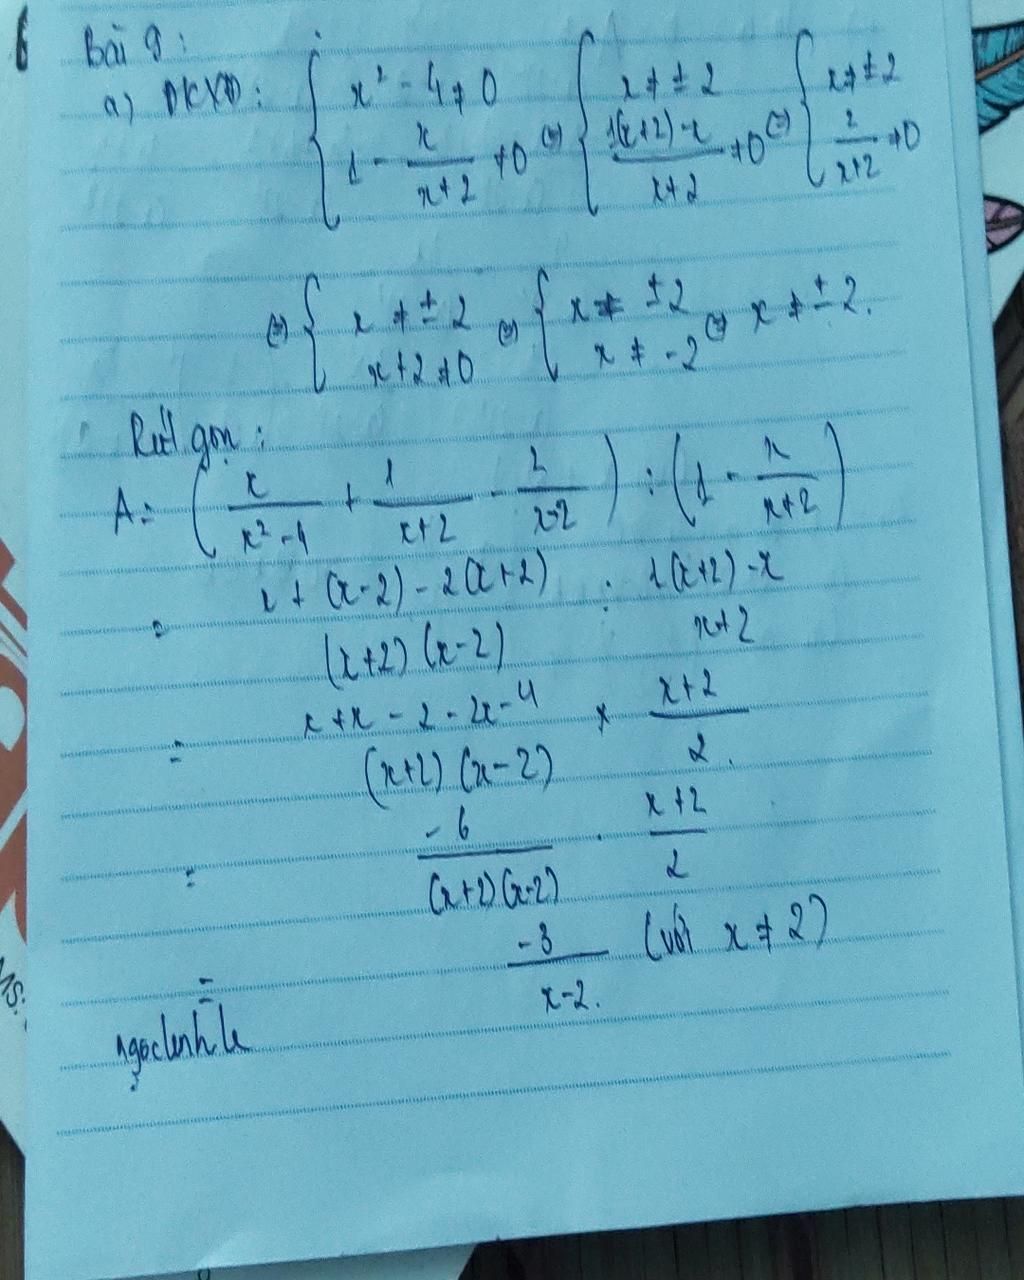 Bài 8:
a) ĐKXĐ: { x² - 4 ≠ 0 ; 1 - x/(x+2) ≠ 0 ⇔ { x ≠ ± 2 ; (1(x+2) - x)/(x+2) ≠ 0 ⇔ { x ≠ ± 2 ; 2/(x+2) ≠ 0
⇔ { x ≠ ± 2 ; x + 2 ≠ 0 ⇔ { x ≠ ± 2 ; x ≠ - 2 ⇔ x ≠ ± 2.
Rút gọn:
A = ( x/(x² - 4) + 1/(x+2) - 2/(x-2) ) : ( 1 - x/(x+2) )
= (x + (x-2) - 2(x+2))/((x+2)(x-2)) : (1(x+2) - x)/(x+2)
= (x + x - 2 - 2x - 4)/((x+2)(x-2)) × (x+2)/2.
= -6/((x+2)(x-2)) . (x+2)/2
= -3/(x-2). (với x ≠ 2)
ngoclinh le